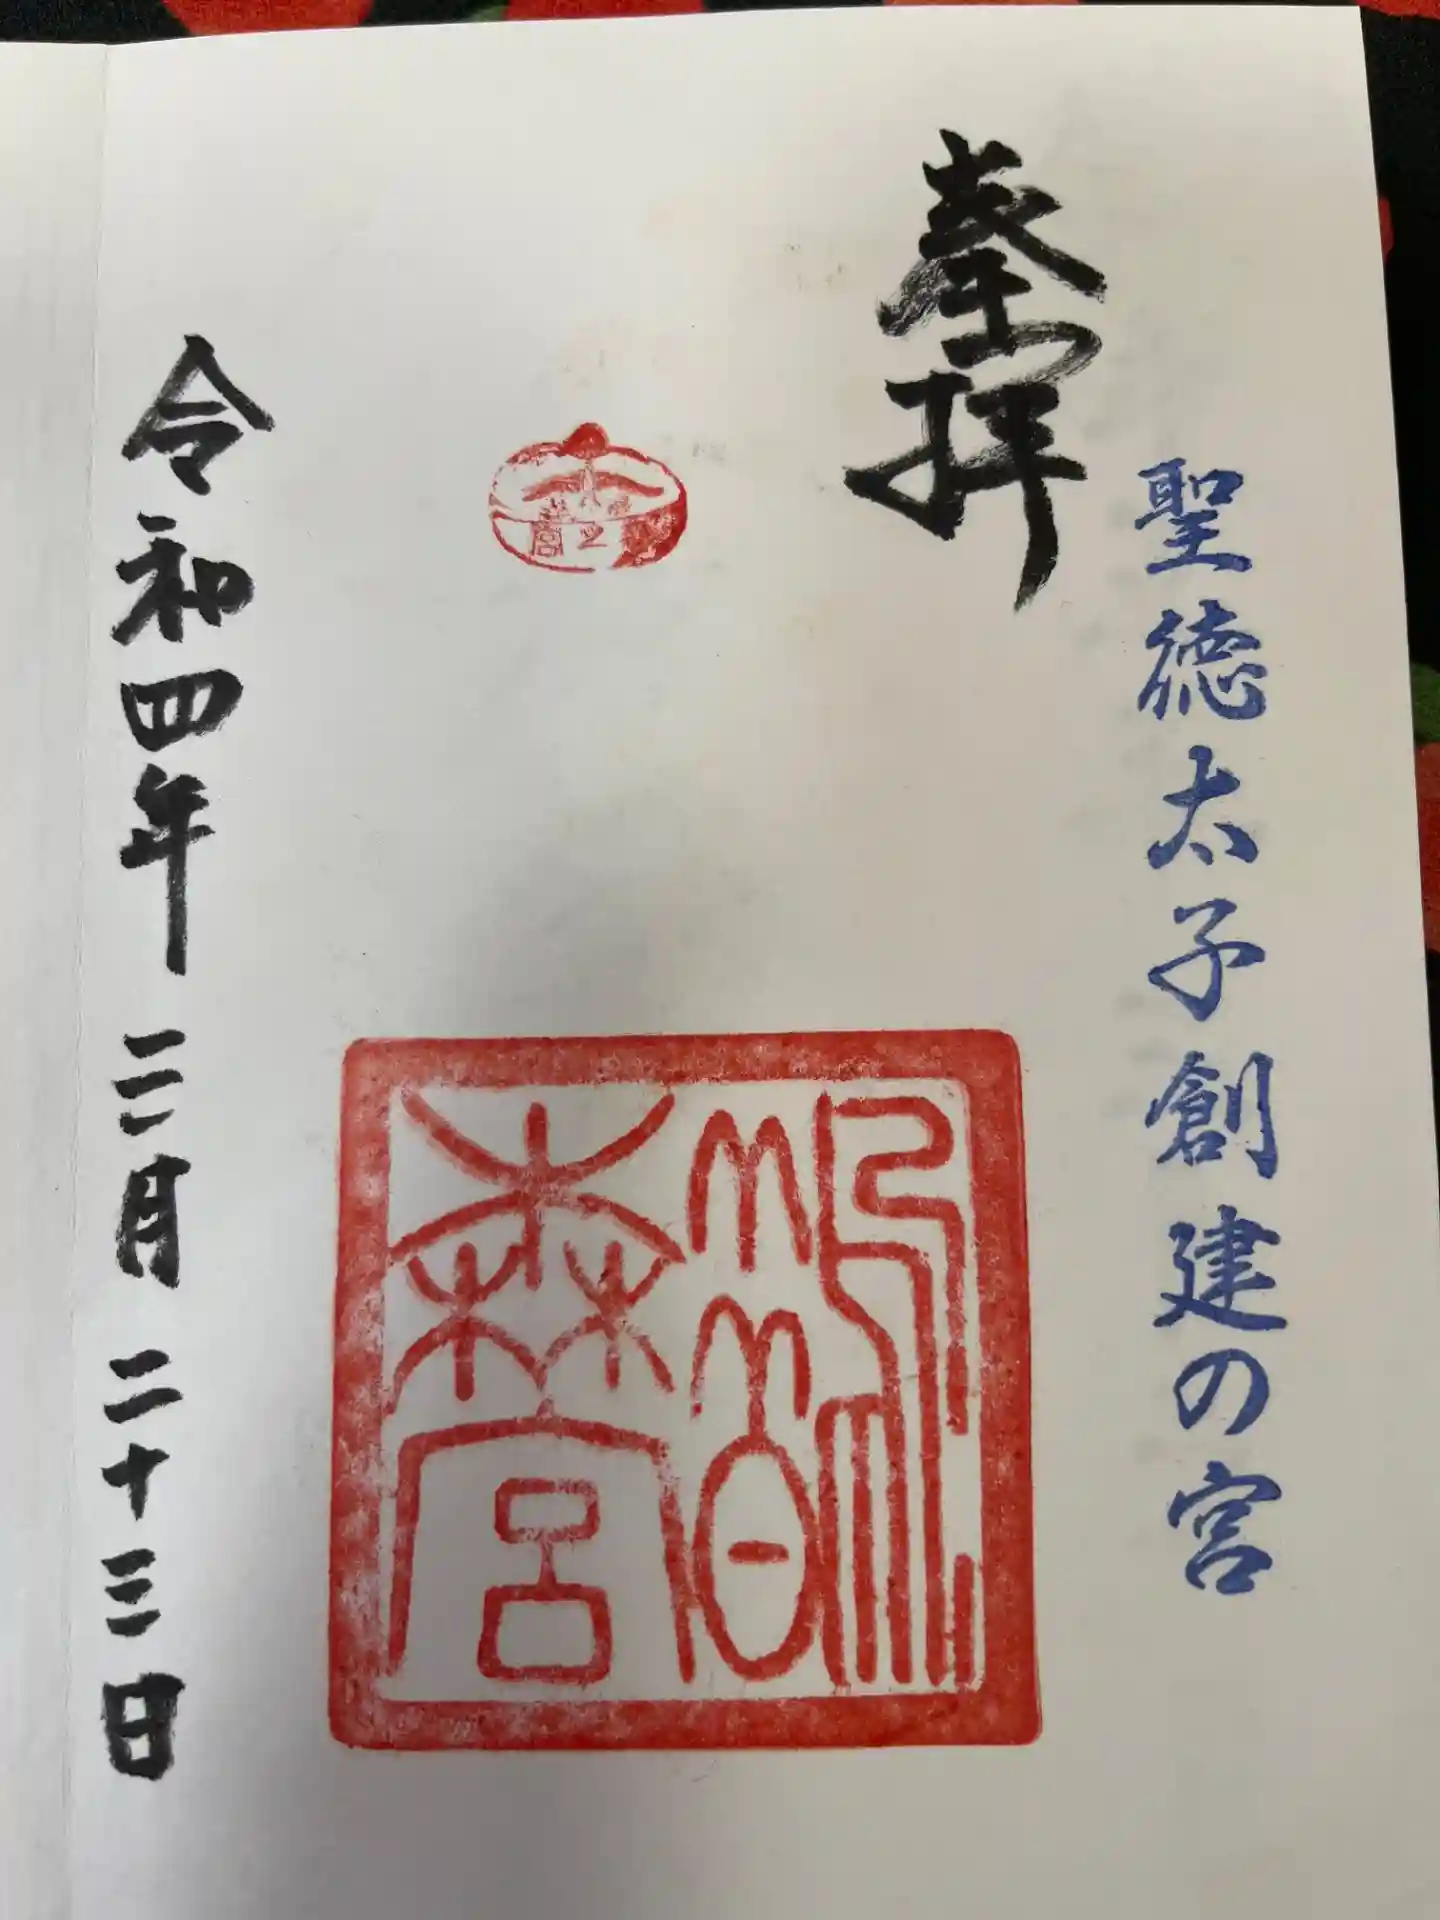 聖徳太子創建の宮
奉拝
鵲森宮
令和四年 三月 二十三日